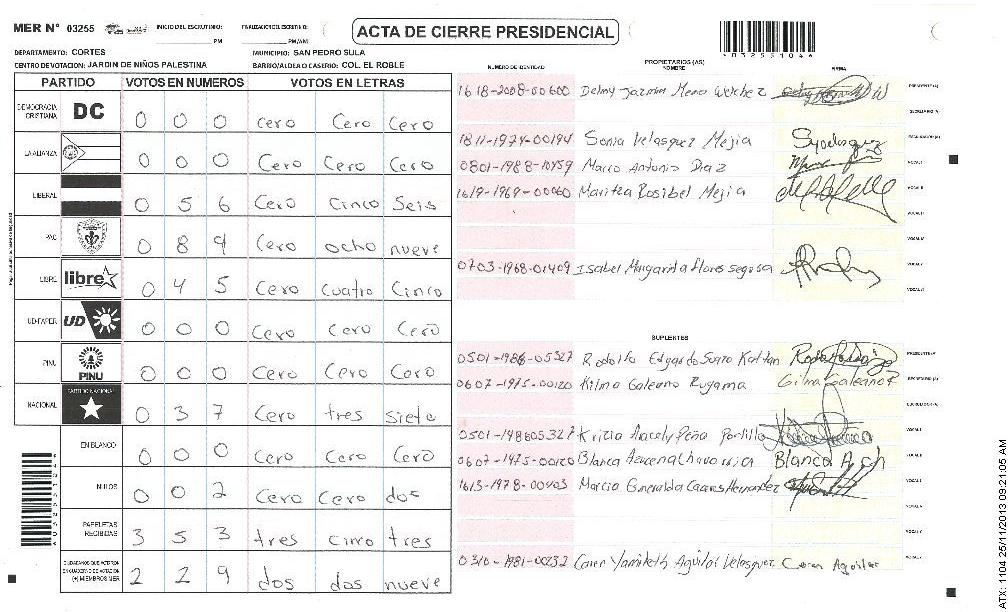 MER N° 03255 INICIO DEL ESCRUTINIO: PM FINALIZACION DEL ESCRUTINIO: PM/AM
ACTA DE CIERRE PRESIDENCIAL
DEPARTAMENTO: CORTES MUNICIPIO: SAN PEDRO SULA
CENTRO DE VOTACION: JARDIN DE NIÑOS PALESTINA BARRIO/ALDEA O CASERIO: COL. EL ROBLE
PARTIDO VOTOS EN NUMEROS VOTOS EN LETRAS
DEMOCRACIA CRISTIANA DC 0 0 0 Cero Cero Cero
LA ALIANZA 0 0 0 Cero Cero Cero
LIBERAL 0 5 6 Cero Cinco Seis
PAC 0 8 9 Cero ocho nueve
LIBRE libre 0 4 5 Cero Cuatro Cinco
UD-FAPER UD 0 0 0 Cero Cero Cero
PINU PINU 0 0 0 Cero Cero Cero
NACIONAL PARTIDO NACIONAL 0 3 7 Cero tres siete
EN BLANCO 0 0 0 Cero Cero Cero
NULOS 0 0 2 Cero Cero dos
PAPELETAS RECIBIDAS 3 5 3 tres cinco tres
CIUDADANOS QUE VOTARON EN CUADERNO DE VOTACION (+) MIEMBROS MER 2 2 9 dos dos nueve
NUMERO DE IDENTIDAD PROPIETARIOS (AS) NOMBRE FIRMA
1618-2008-00600 Delmy Jazmin Mena Welchez PRESIDENTE (A)
SECRETARIO (A)
1811-1974-00194 Sonia Velasquez Mejia ESCRUTADOR (A)
0801-1988-10459 Marco Antonio Diaz VOCAL I
1619-1969-00060 Maritza Rosibel Mejia VOCAL II
0703-1968-01409 Isabel Margarita flores segosa VOCAL V
SUPLENTES
0501-1986-05327 Rodolfo Edgardo Kattan PRESIDENTE (A)
0607-1975-00120 Kilma Galeano Rugama Gilma Galeano R SECRETARIO (A)
ESCRUTADOR (A)
0501-198605327 Krizia Aracely Peña Portillo VOCAL I
0607-1975-00120 Blanca Azucena Chavarria Blanca A ch VOCAL II
1613-1978-00403 Marcia Esmeralda Caceres Hernandez
0310-1981-00232 Caren Yamileth Aguilar Velasquez Caren Aguilar
ATX: 1104 25/11/2013 09:21:05 AM